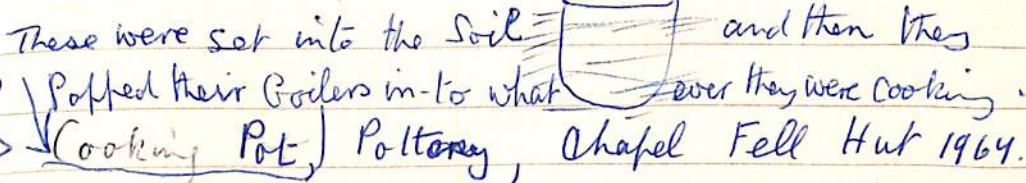 These were set into the Soil and then they
Popped their Boilers in-to what ever they were cooking.
Cooking Pot, Pottery, Chapel Fell Hut 1964.